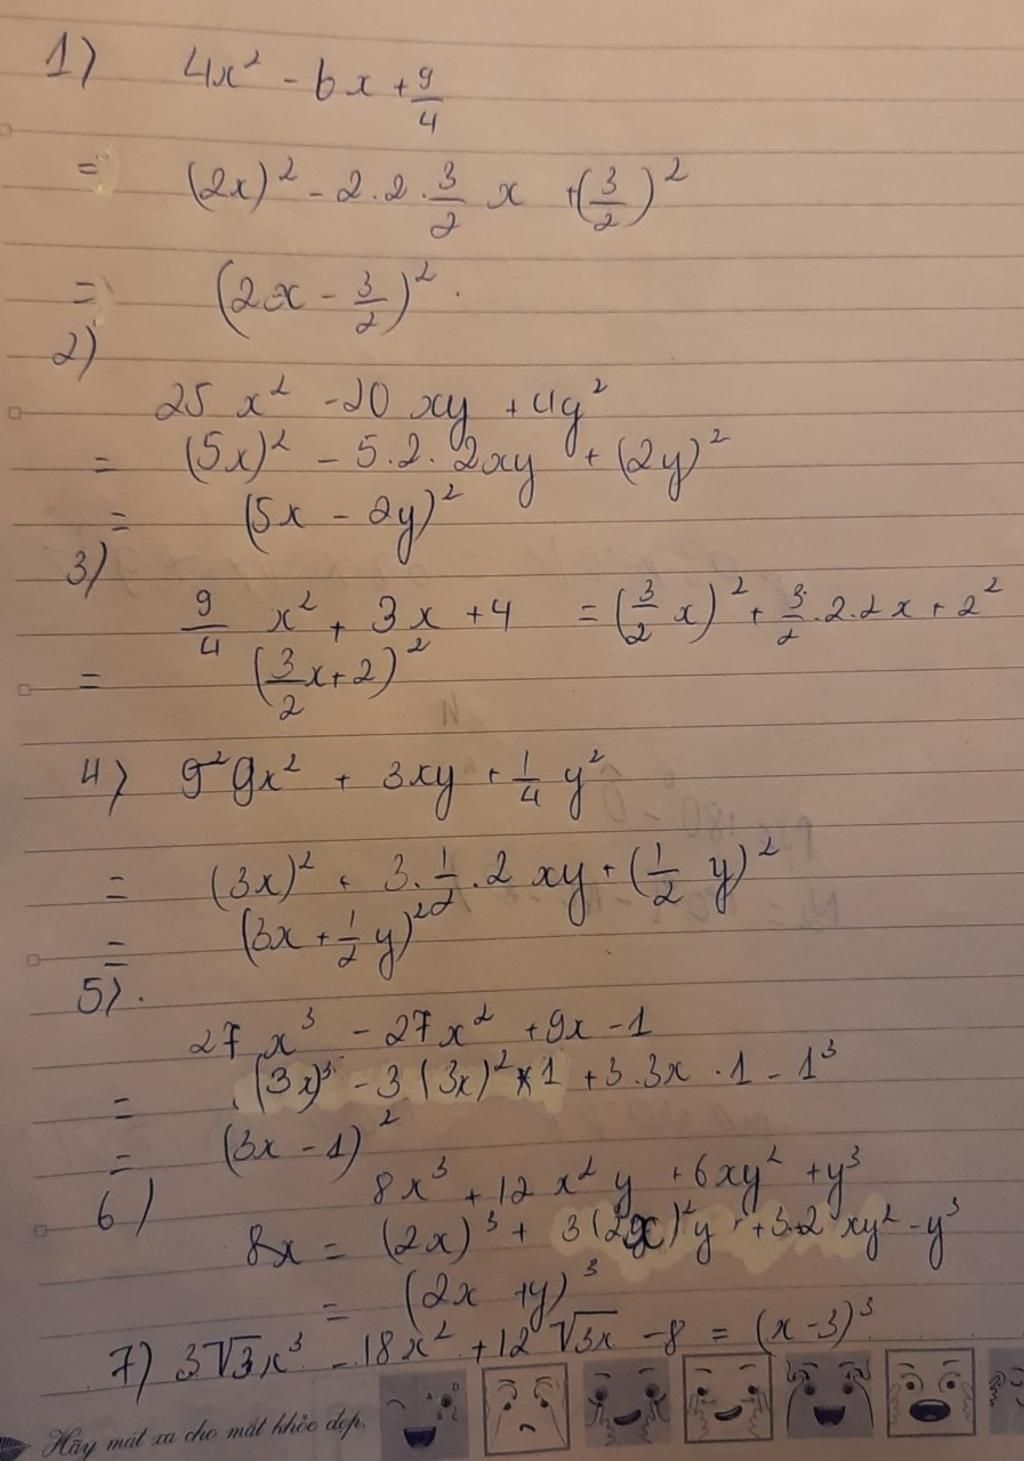 1) 4x² - 6x + 9/4
= (2x)² - 2.2.3/2 x + (3/2)²
= (2x - 3/2)².
2)
25x² - 20xy + 4y²
= (5x)² - 5.2.2xy + (2y)²
= (5x - 2y)²
3)
9/4 x² + 3x + 4 = (3/2 x)² + 3/2.2.2x + 2²
= (3/2 x + 2)²
4) 9² 9x² + 3xy + 1/4 y²
= (3x)² + 3.1/2.2xy + (1/2 y)²
= (3x + 1/2 y)²
5).
27x³ - 27x² + 9x - 1
= (3x)³ - 3(3x)² * 1 + 3.3x.1 - 1³
= (3x - 1)²
6) 8x³ + 12x²y + 6xy² + y³
8x = (2x)³ + 3(2x)²y + 3.2xy² - y³
= (2x + y)³
7) 3√3x³ - 18x² + 12√3x - 8 = (x - 3)³
Hãy mát xa cho mắt khỏe đẹp.